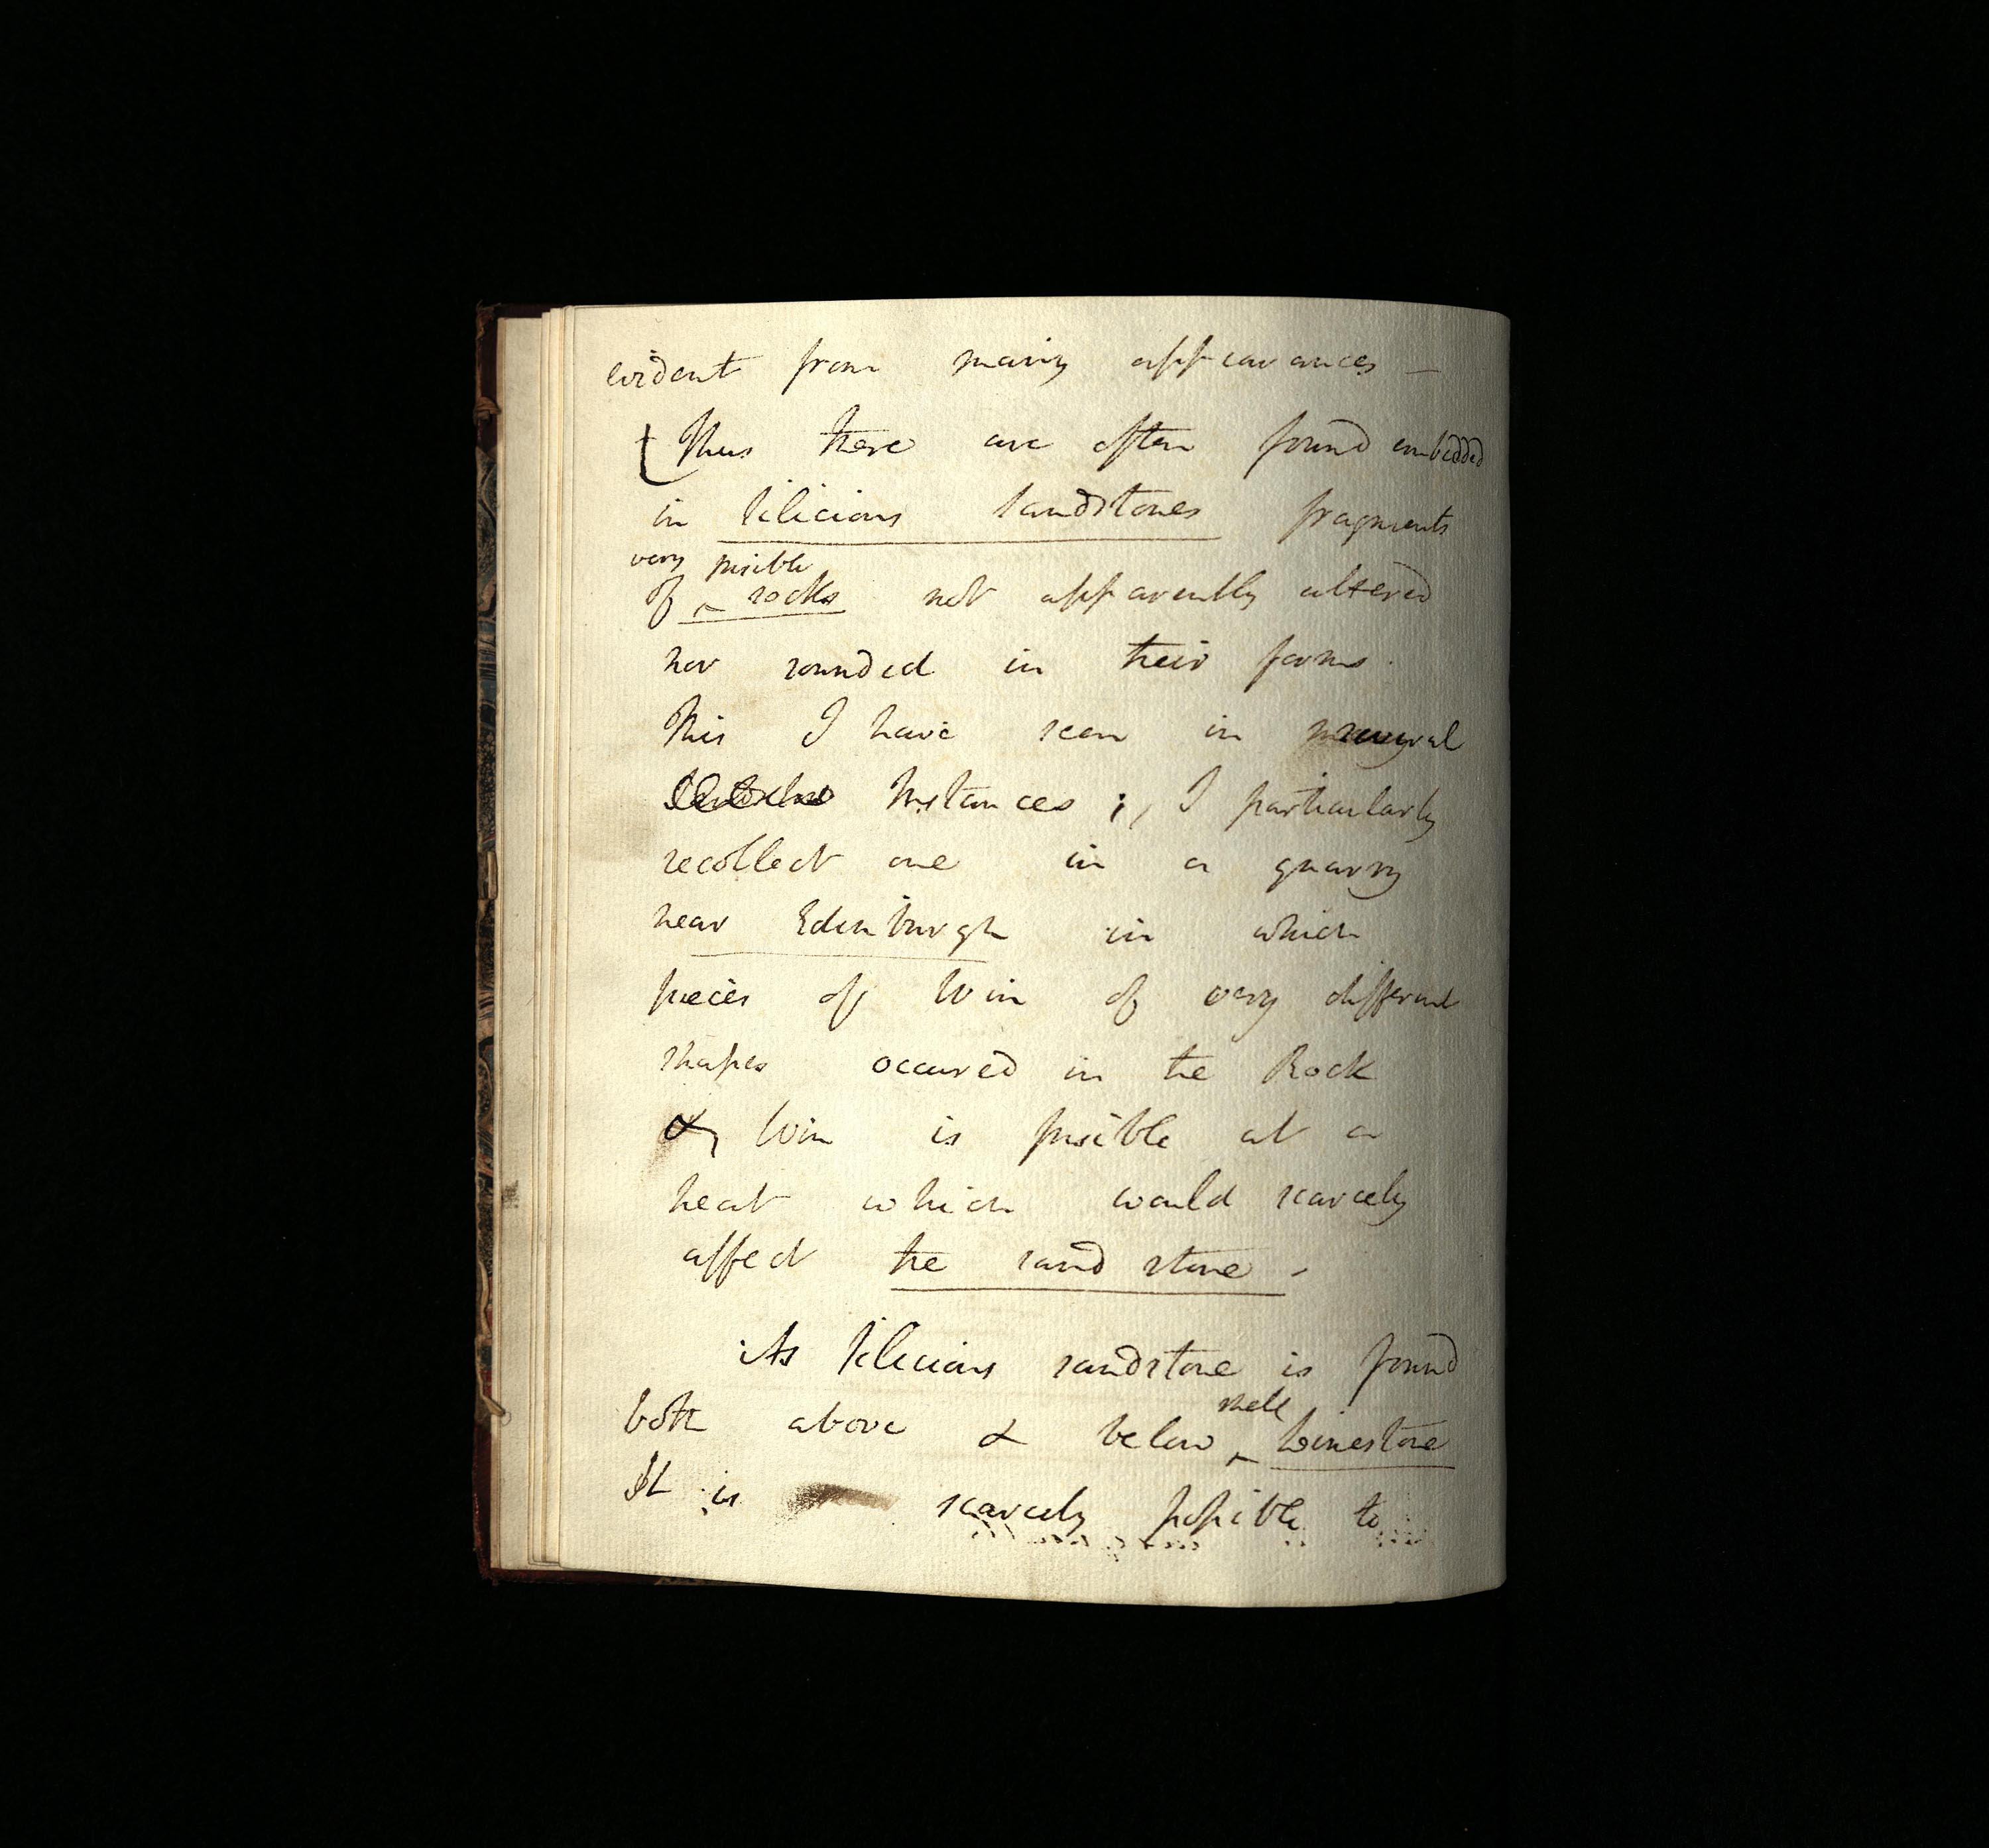 evident from many appearances —
Thus there are often found embedded
in silicious sandstones fragments
very fusible
of ^ rocks not apparently altered
nor rounded in their forms.
This I have seen in several
Instances ; , I particularly
recollect one in a quarry
near Edinburgh in which
pieces of Win of very different
shapes occured in the Rock
& Win is fusible at a
heat which would scarcely
affect the sand stone -
As silicious sandstone is found
shell
both above & below ^ Limestone
It is scarcely possible to